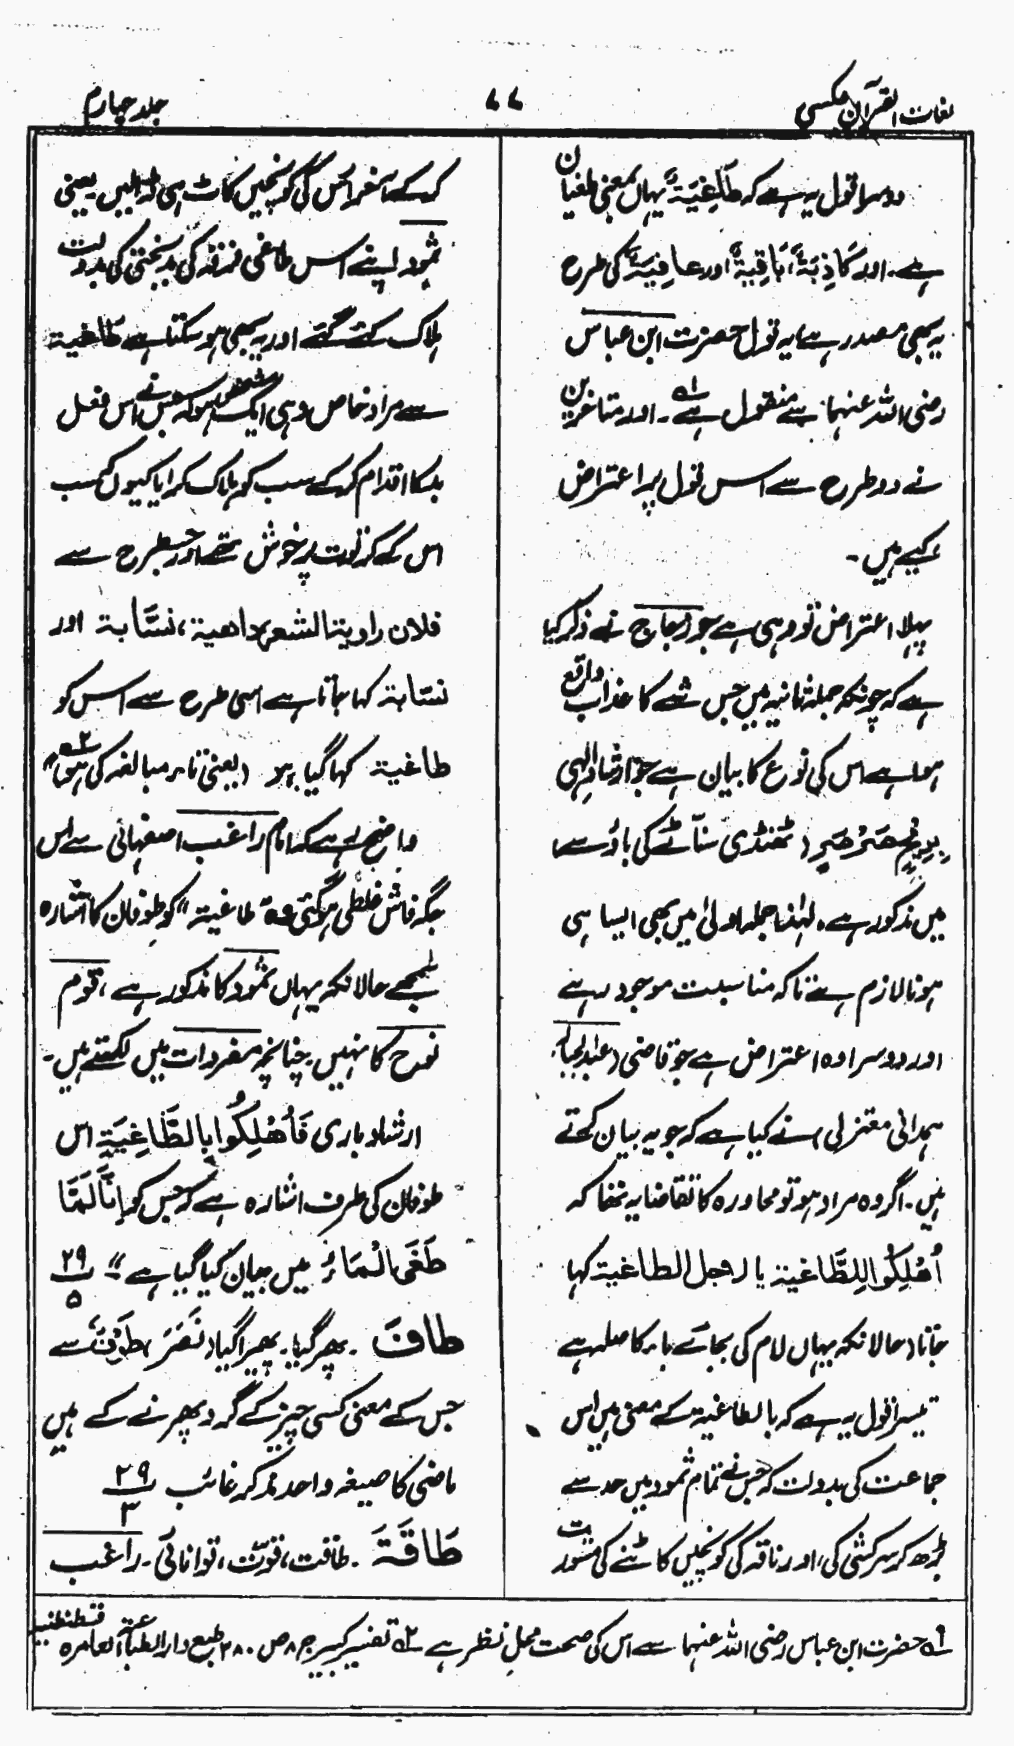 لغات القرآن عکسی
۷۷
جلد چہارم
دوسرا قول یہ ہے کہ طَاغِیَۃٌ یہاں بمعنی طغیان
ہے۔ اور کَاذِبَۃٌ، بَاقِیَۃٌ اور عافِیَۃٌ کی طرح
یہ بھی مصدر ہے، یہ قول حضرت ابن عباس
رضی اللہ عنہما سے منقول ہے۔ اور متاخرین
نے دو طرح سے اس قول پر اعتراض
کیے ہیں۔
پہلا اعتراض تو وہی ہے جو زجاج نے ذکر کیا
ہے کہ چونکہ جملہ ثانیہ میں جس شے کا عذاب واقع
ہوا ہے اس کی نوع کا بیان ہے جو ارشاد الٰہی
بِرِیْحٍ صَرْصَرٍ (ٹھنڈی سنّاٹے کی باؤ سے)
میں مذکور ہے۔ لہٰذا جملہ اولیٰ میں بھی ایسا ہی
ہونا لازم ہے تاکہ مناسبت موجود رہے
اور دوسرا وہ اعتراض ہے جو قاضی (عبد الجبار
ہمدانی معتزلی) نے کیا ہے کہ جو یہ بیان کرتے
ہیں۔ اگر وہ مراد ہو تو محاورہ کا تقاضا یہ تھا کہ
اُھْلِکُوا لِلطَّاغیۃ یا لاجل الطاغیۃ کہا
جاتا (حالانکہ یہاں لام کی بجائے باء کا صلہ ہے
تیسرا قول یہ ہے کہ بالطاغیۃ کے معنی ہیں اس
جماعت کی بدولت کہ جس نے تمام ثمود میں حد سے
بڑھ کر سرکشی کی، اور ناقہ کی کونچیں کاٹنے کی مشورت
کر کے آخر اس کی کونچیں کاٹ ہی ڈالیں یعنی
ثمود اپنے اس طاغی فرقہ کی بدبختی کی بدولت
ہلاک کئے گئے اور یہ بھی ہو سکتا ہے طاغیۃ
سے مراد خاص وہی ایک شخص ہو کہ جس نے اس فعل
بد کا اقدام کر کے سب کو ہلاک کرایا کیوں کہ سب
اس کے کرتوت پر خوش تھے اور جس طرح سے
فلان راویۃ الشعر، داھیۃ، نسّابۃ اور
نسّابۃ کہا جاتا ہے اسی طرح سے اس کو
طاغیۃ کہا گیا ہو (یعنی تاء مبالغہ کی ہو)" ؂۲
واضح رہے کہ امام راغب اصفہانی سے اس
جگہ فاش غلطی ہو گئی وہ "طاغیۃ" کو طوفان کا اشارہ
سمجھے حالانکہ یہاں ثمود کا مذکور ہے، قوم
نوح کا نہیں۔ چنانچہ مفردات میں لکھتے ہیں۔
ارشاد باری فَاُھْلِکُوا بِالطَّاغِیَۃِ اس
طوفان کی طرف اشارہ ہے کہ جس کو اِنَّا لَمَّا
طَغَی الْمَاءُ میں بیان کیا گیا ہے" ۲۹/۵
طَافَ ۔ پھر گیا۔ پھیرا گیا (نَصَرَ) طَوْفٌ سے
جس کے معنی کسی چیز کے گرد پھرنے کے ہیں
ماضی کا صیغہ واحد مذکر غائب ۲۹/۳
طَاقَۃَ ۔ طاقت، قوّت، توانائی۔ راغب
؂۱ حضرت ابن عباس رضی اللہ عنہما سے اس کی صحت محلِ نظر ہے ؂۲ تفسیر کبیر ج ۸ ص ۲۸۰ طبع دار الطباعۃ العامرہ قسطنطنیہ